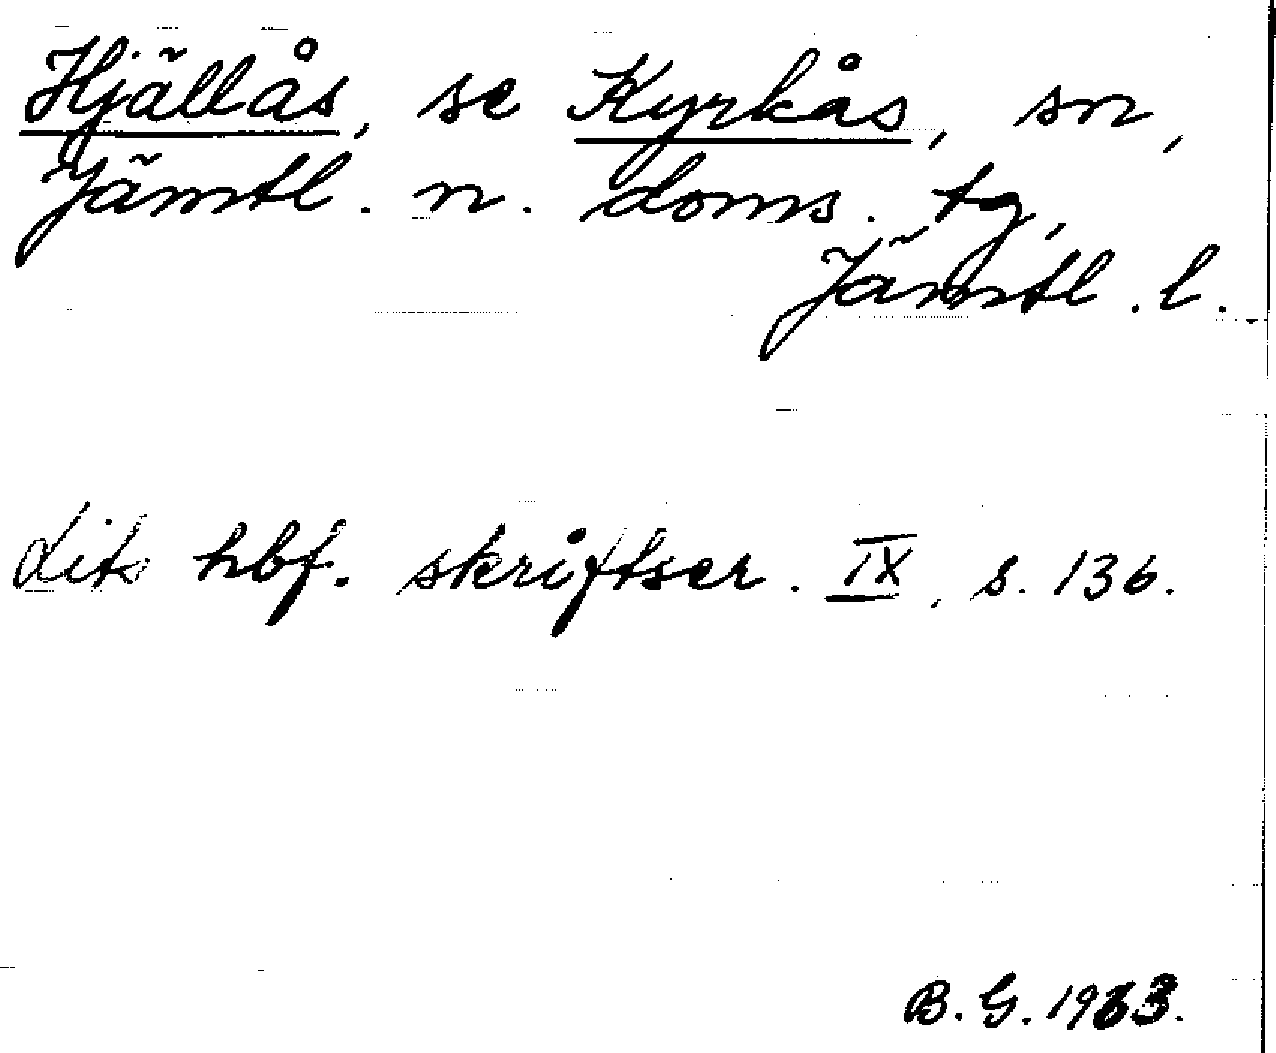 Hjällås, se Kyrkås, sn,
Jämtl. n. doms. tg,
Jämtl. l.
Lits hbf. skriftser. IX, s. 136.
B. G. 1983.